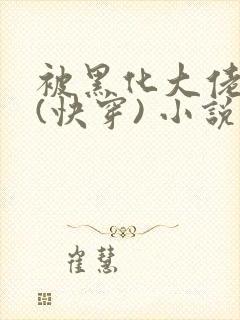 被黑化大佬
(快穿)小說
崔慧